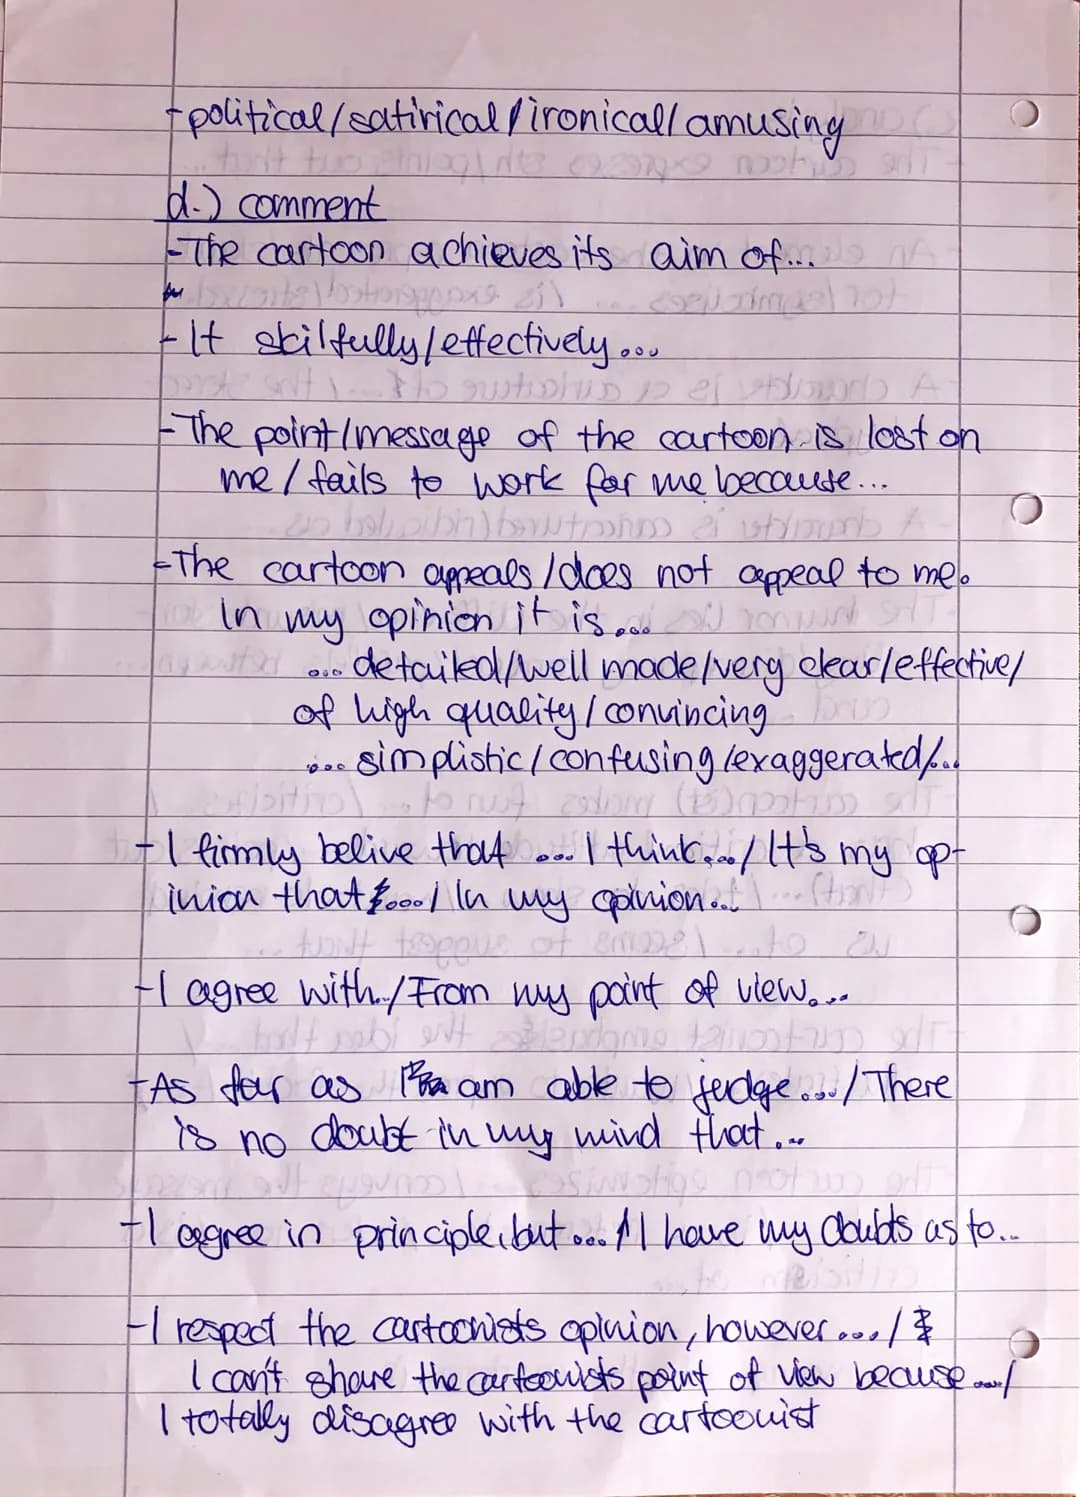 - political/satirical/ironical/amusing
d.) comment
- The cartoon achieves its aim of...
- It skilfully/effectively...
- The point/message of the cartoon is lost on
me / fails to work for me because...
- The cartoon appeals /does not appeal to me.
In my opinion it is...
... detailed/well made/very clear/effective/
of high quality/convincing
... simplistic/confusing/exaggerated/...
- I firmly belive that ... I think.../It's my op-
inion that.../ In my opinion...
- I agree with../From my point of view....
- As far as I am able to judge.../ There
is no doubt in my mind that...
- I agree in principle, but... / I have my doubts as to...
- I respect the cartoonists opinion, however.../
I can't share the cartoonists point of view because.../
I totally disagree with the cartoonist